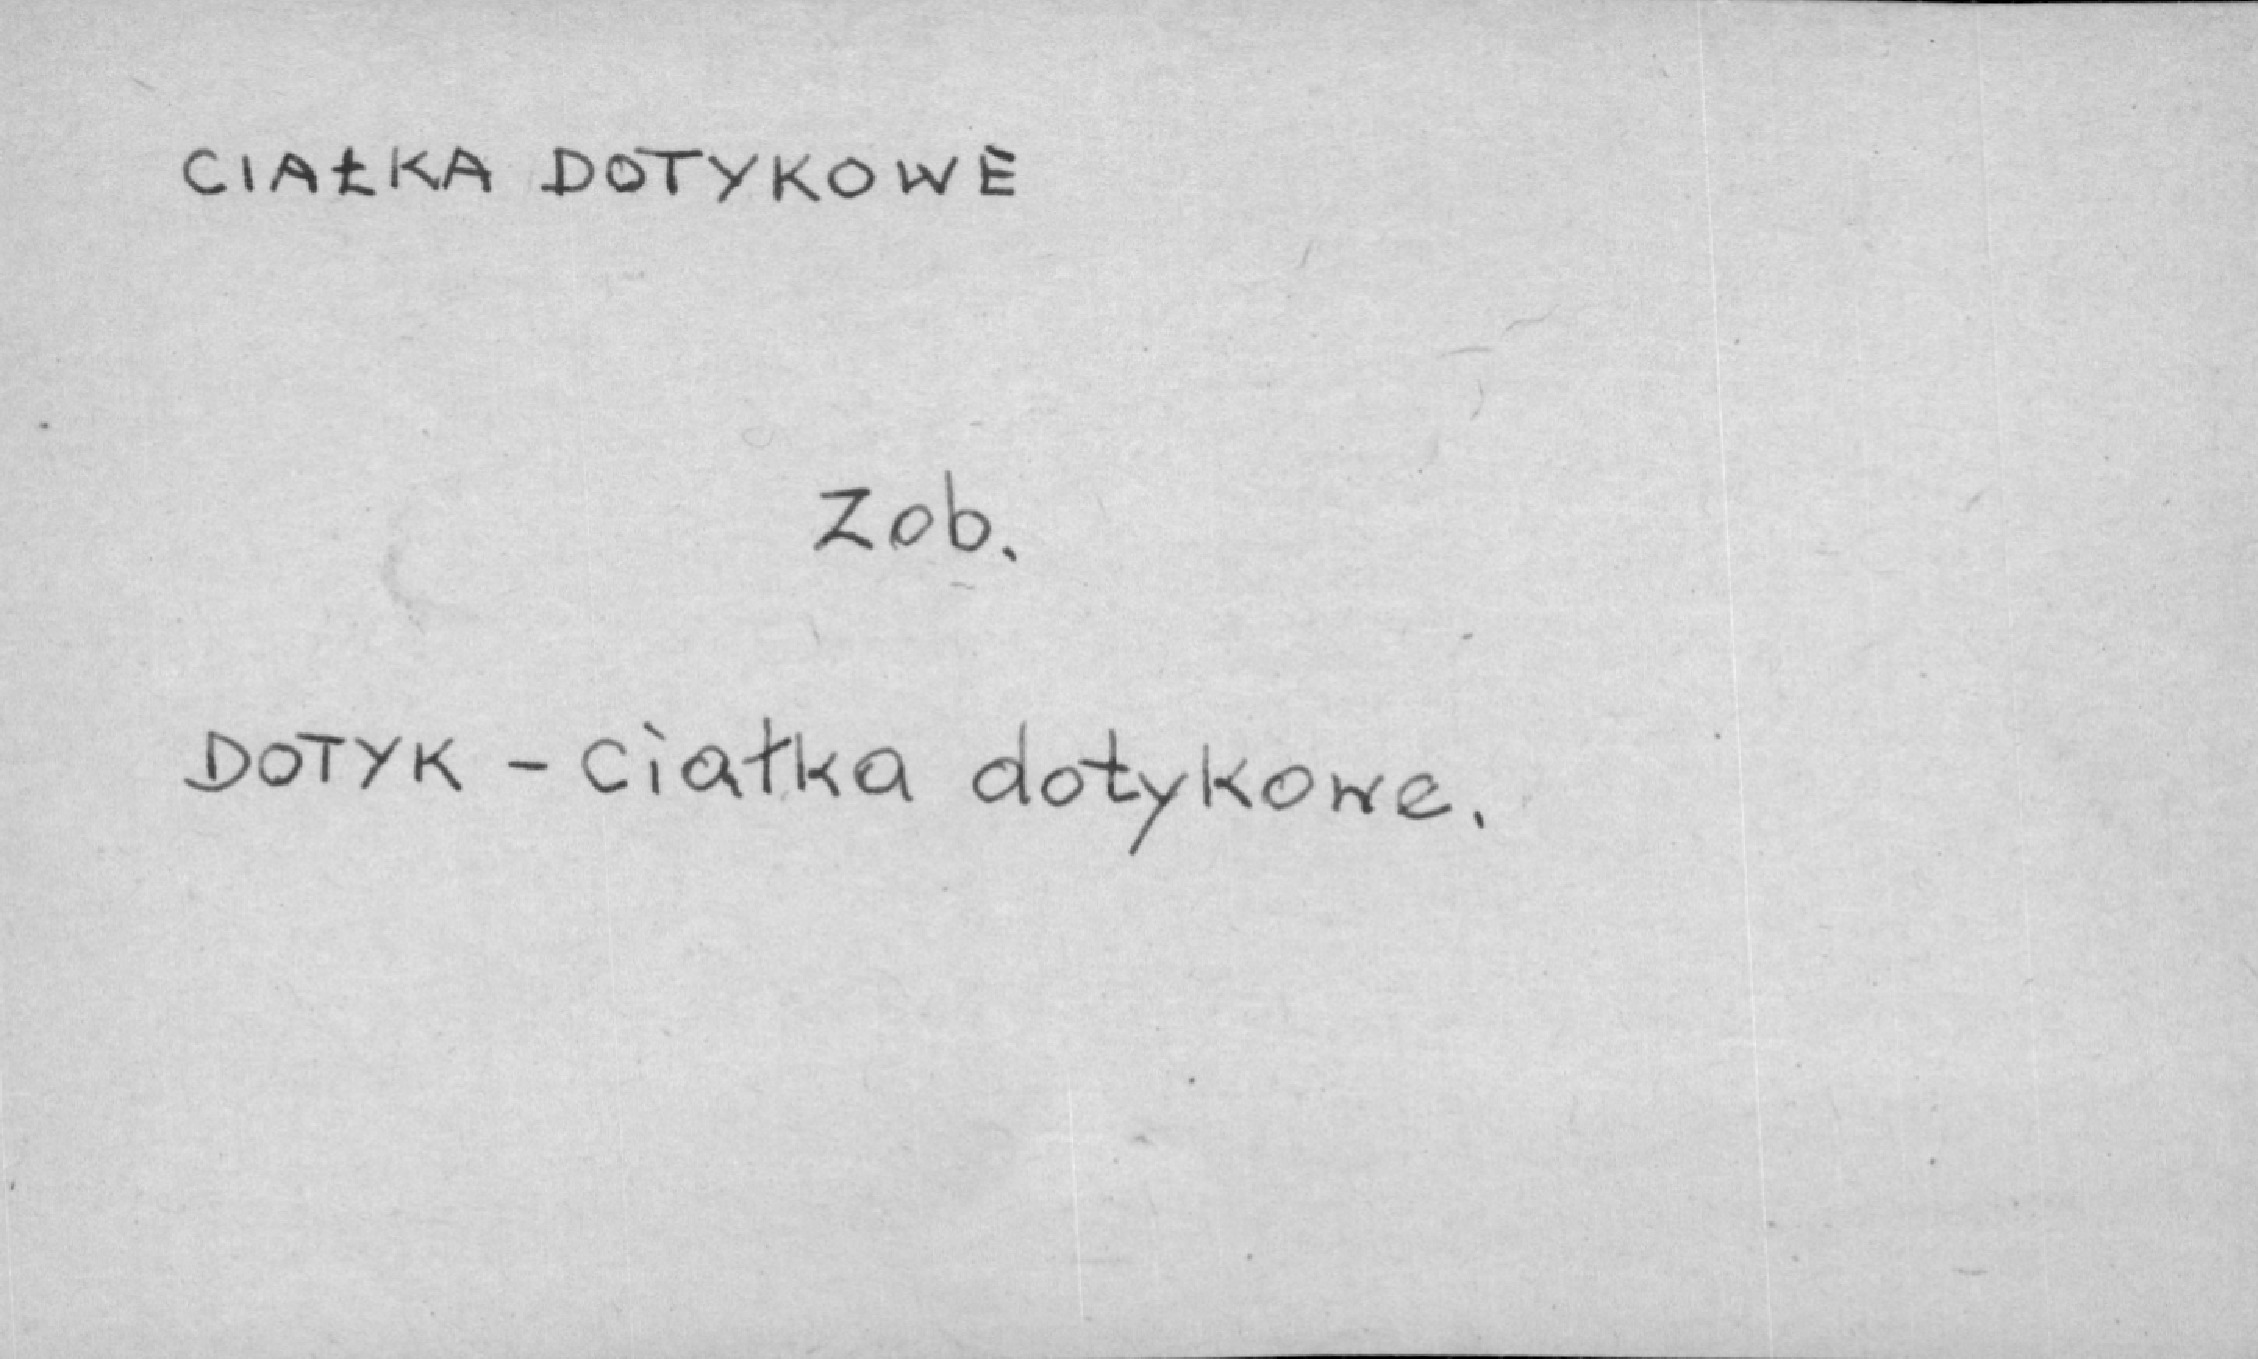 CIAŁKA DOTYKOWE
Zob.
DOTYK - Ciałka dotykowe.